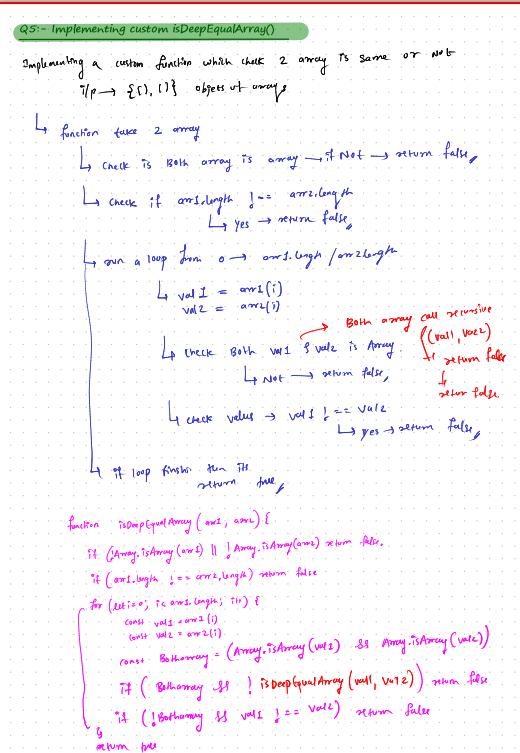 Q5:- Implementing custom isDeepEqualArray()
Implementing a custom function which chek 2 array is same or Not
i/p → {[], []} objets of arrays
↳ function take 2 array
↳ Check is Both array is array → if Not → return false,
↳ Check if arr1.length !== arr2.length
↳ yes → return false,
↳ run a loop from 0 → arr1.lengh / arr2length
↳ val1 = arr1(i)
val2 = arr2(i)
→ Both array call recursive
f(val1, val2)
↳ return false
↳ retur false
↳ Check Both val1 & val2 is Array.
↳ Not → return false,
↳ check values → val1 !== val2
↳ yes → return false,
↳ if loop finshi then its
return true,
function isDeepEqualArray (arr1, arr2) {
if (!Array.isArray(arr1) || !Array.isArray(arr2) return false.
if (arr1.length !== arr2.length) return false
for (let i=0; i< arr1.length; i++) {
const val1 = arr1(i)
const val2 = arr2(i)
const Botharray = (Array.isArray(val1) && Array.isArray(val2))
if ( Botharray && ! isDeepEqualArray (val1, val2)) return false
if ( !Botharray && val1 !== val2) return false
}
return true